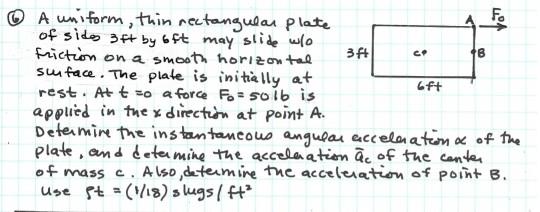 ⑥ A uniform, thin rectangular plate
of sides 3ft by 6ft may slide w/o
friction on a smooth horizontal
surface. The plate is initially at
rest. At t=0 a force F₀=50lb is
applied in the x direction at point A.
Determine the instantaneous angular acceleration α of the
plate, and determine the acceleration āc of the center
of mass c. Also, determine the acceleration of point B.
Use ρt = (1/18) slugs/ft²
A
F₀
3ft
c
B
6ft